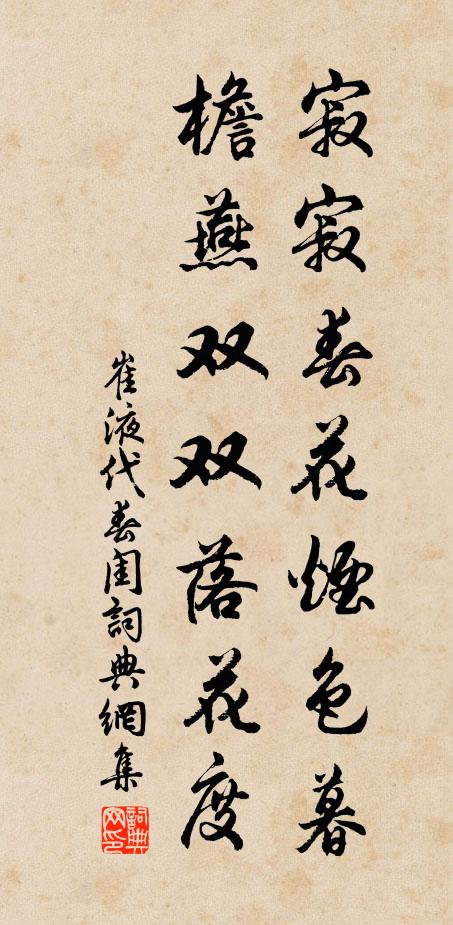 寂寂春花煙色暮
檐燕双双落花度
崔液代春閨詞典網集
詞典网印